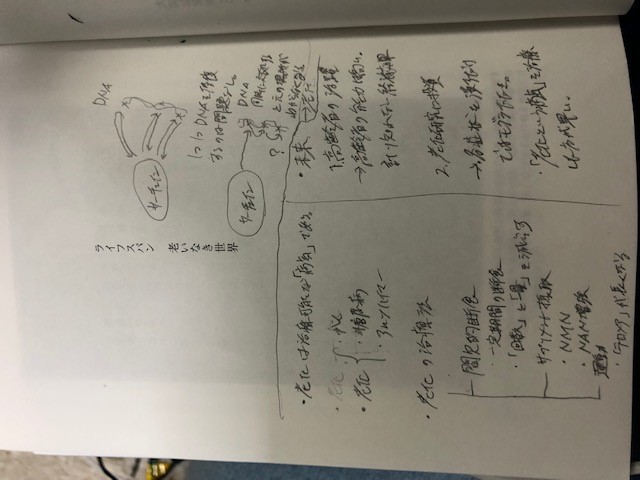 ライフスパン 老いなき世界
DNA
サーチュイン
1つ1つDNAを修復
するのは問題なし。
サーチュイン
DNA
?
と元の場所が
わからなくなる
→老化
・老化は治療可能な「病気」である。
・老化
・ガン
・糖尿病
・アルツハイマー
・老化の治療法
間欠的断食
・一定期間の断食
・「回数」と「量」を減らす
サプリメント摂取
・NMN
・NAN増強
運動
・「テロメア」が長くなる
・未来
1.高齢者の活躍
→高齢者の能力は高い。
計り知れない経済効果
2.老化研究に投資
→各症状を
ではモグラたたき。
・「老化という病気」を治療
した方が早い。